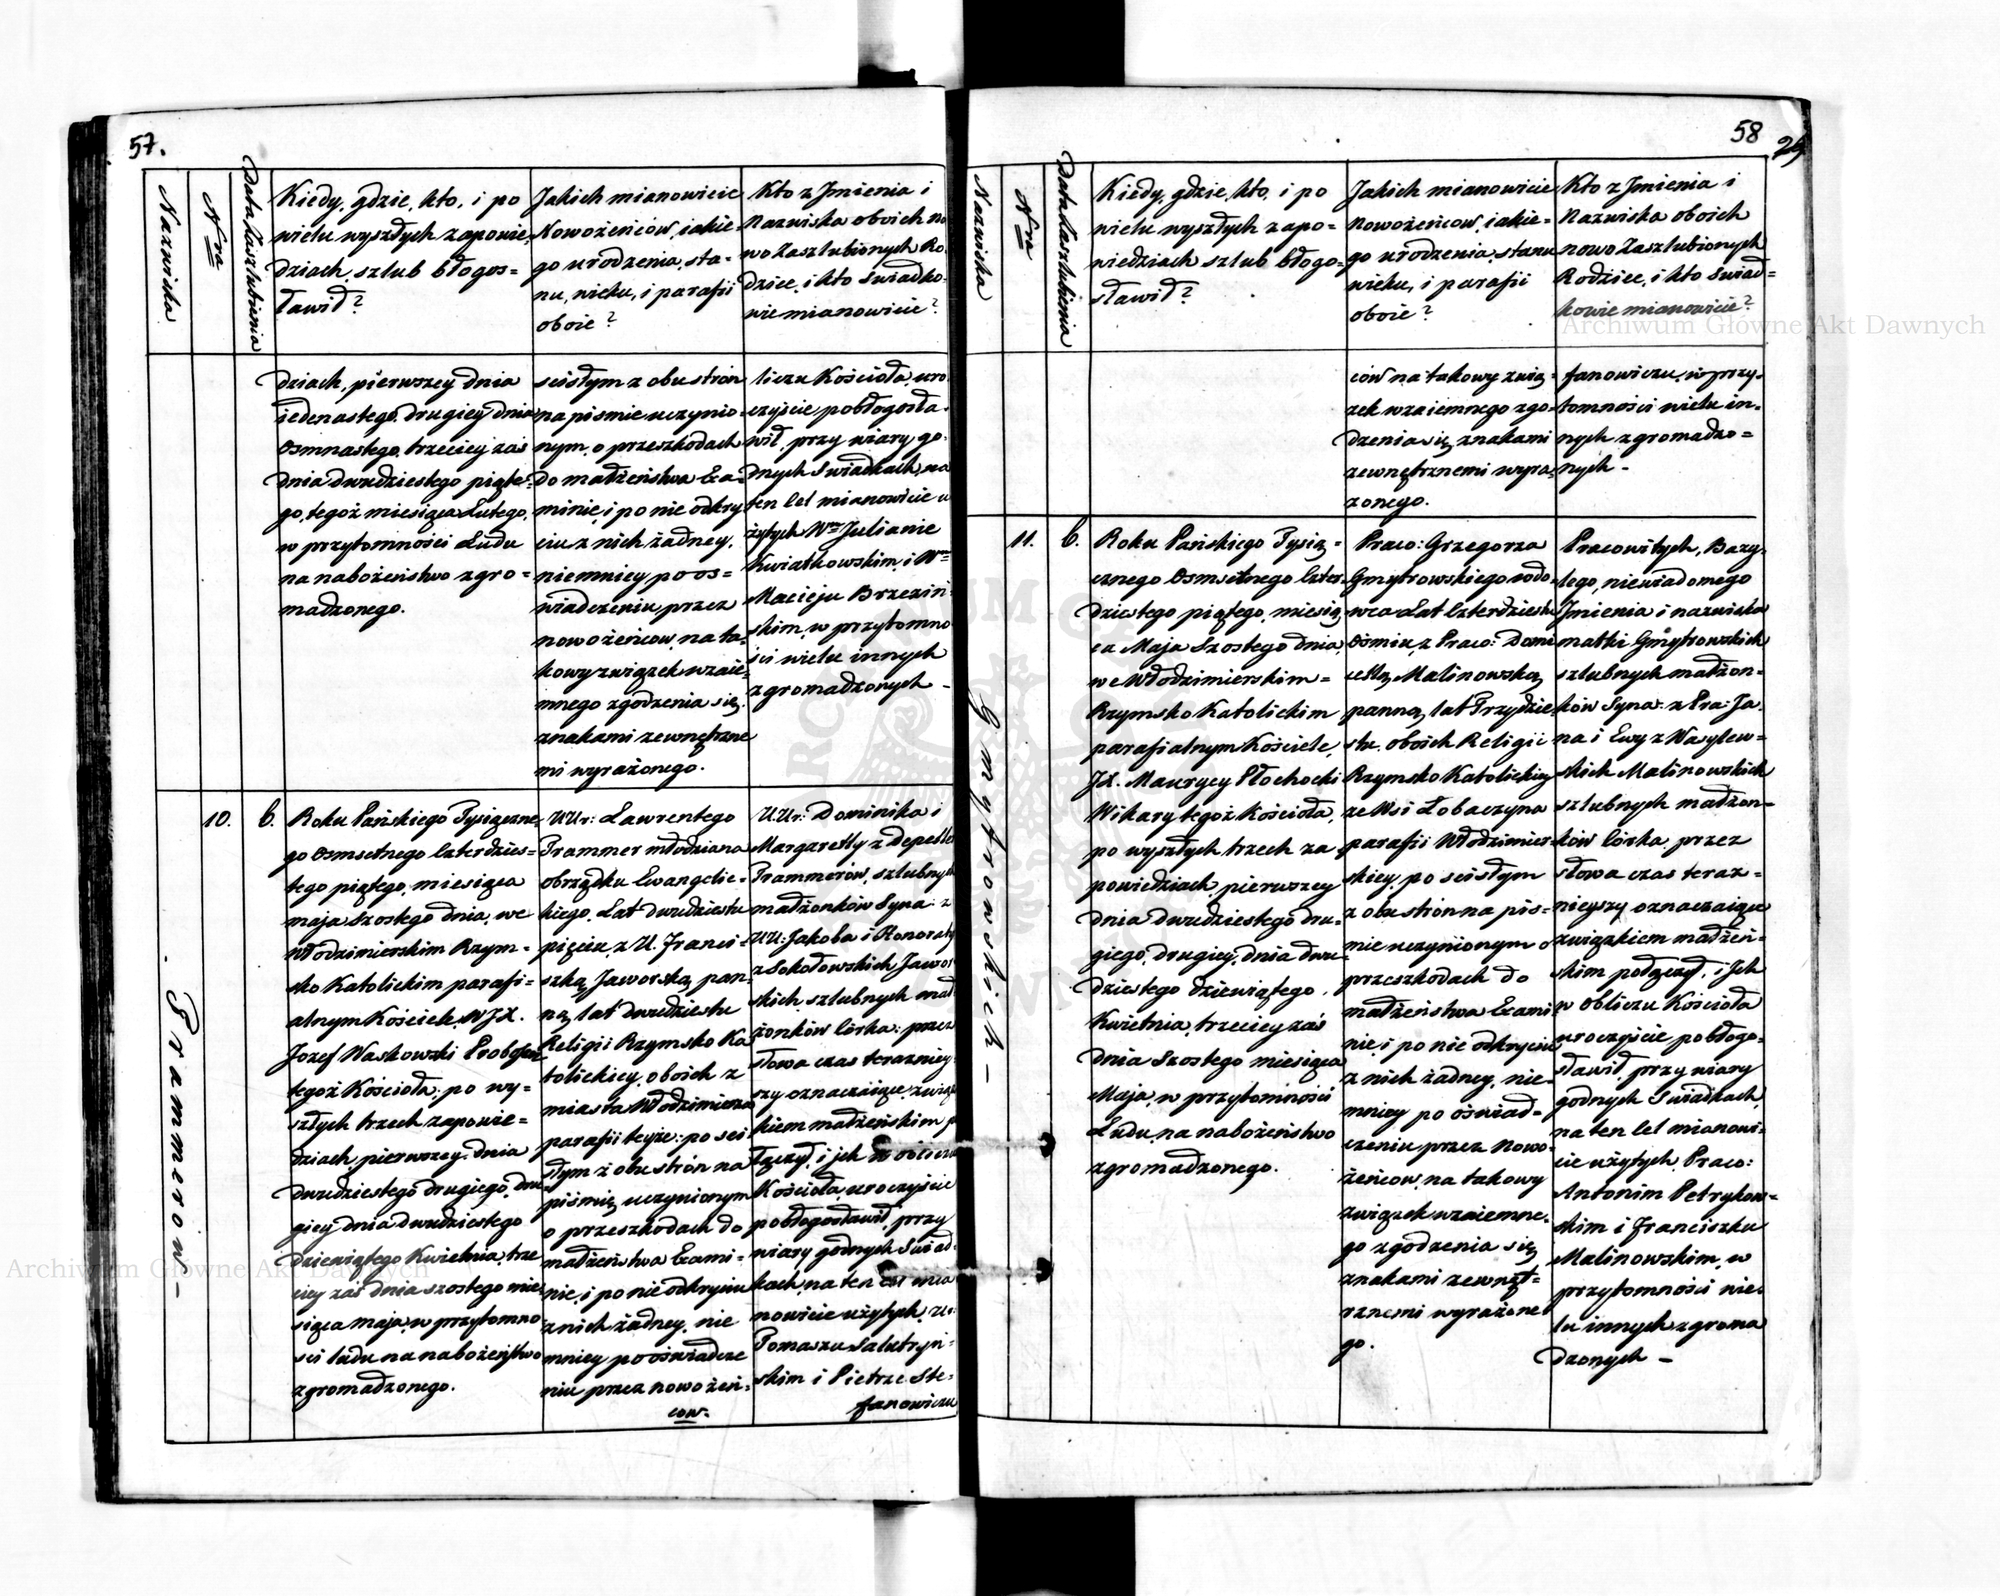 57.
Nazwiska
Nra
Data Zaszlubienia
Kiedy, gdzie, kto, i po
wielu wyszłych zapowie-
dziach szlub błogos=
ławił?
Jakich mianowicie
Nowożeńców, iakie-
go urodzenia, sta=
nu, wieku, i parafii
oboie?
Kto z Jmienia i
Nazwiska oboich no
wo Zaszlubionych Ro-
dzice, i kto Swiadko-
wie mianowicie?
dziach, pierwszey dnia
iedenastego, drugiey dnia
Osmnastego, trzeciey zaś
dnia dwudziestego piąte-
go, tegoż miesiąca Lutego,
w przytomności Ludu
na nabożeństwo zgro=
madzonego.
scisłym z obu strón
na pismie uczynio-
nym, o przeszkodach
do małżeństwa Exa-
minie, i po nie odkry
ciu z nich żadney,
niemniey po os=
wiadczeniu przez
nowożeńcow, na ta-
kowy związek wzaie-
mnego zgodzenia się
znakami zewnętrzne
mi wyrażonego.
liczu Kościoła, uro-
czyście pobłogosła-
wił, przy wiary go-
dnych Swiadkach, na
ten cel mianowicie u
żytych Wm Julianie
Kwiatkowskim, i Wm
Macieju Brzeziń
skim, w przytomno
ści wielu innych
zgromadzonych -
10.
6.
Trammerow -
Roku Pańskiego Tysiączne-
go Osmsetnego Czterdzies=
tego piątego, miesiąca
maja Szostego dnia, we
Włodzimierskim Rzym=
sko Katolickim parafi-
alnym Kościele, WJX.
Jozef Waskowski Proboszcz
tegoż Kościoła; po wy=
szłych trzech zapowie=
dziach, pierwszey dnia
dwudziestego drugiego, dru
giey dnia dwudziestego
dziewiątego Kwietnia, trze
ciey zaś dnia szostego mie
siąca maja, w przytomno
sci ludu na nabożeństwo
zgromadzonego.
UUr: Lawrentego
Trammer młodziana
obrządku Ewangelic-
kiego, Lat dwudziestu
pięciu, z U. Franci-
szką Jaworską pan-
ną, lat dwudziestu
Religii Rzymsko Ka
tolickiey, oboich z
miasta Włodzimierza
parafii teyże: po sci
słym z obu strón na
piśmie uczynionym
o przeszkodach do
małżeństwa Exami-
nie, i po nie odkryciu
z nich żadney, nie
mniey po oświadcze
niu przez nowożeń-
cow.
UUr: Dominika i
Margaretty z
Trammerów, szlubnych
małżonków Syna: z
UU: Jakoba i Honoraty
z Sokołowskich Jawor
skich szlubnych mał
żonków Córka: przez
słowa czas terazniey
szy oznaczaiące, związ
kiem małżeńskim po
łączył, i jch w obliczu
Kościoła uroczyście
pobłogosławił, przy
wiary godnych Swiad-
kach, na ten cel mia
nowicie użytych, U:
Tomaszu Salutryń-
skim i Pietrze Ste-
fanowiczu
58
29
Nazwiska
Nra
Data Zaszlubienia
Kiedy, gdzie, kto, i po
wielu wyszłych zapo=
wiedziach szlub błogo-
sławił?
Jakich mianowicie
Nowożeńcow, iakie=
go urodzenia, stanu
wieku, i parafii
oboie?
Kto z Jmienia i
Nazwiska oboich
nowo Zaszlubionych
Rodzice, i kto Swiad=
kowie mianowicie?
Archiwum Główne Akt Dawnych
ców na takowy zwią-
zek wzaiemnego zgo-
dzenia się, znakami
zewnętrznemi wyra-
zonego.
fanowiczu, w przy-
tomności wielu in-
nych zgromadzo=
nych -
11.
6.
Gmytrowskich -
Roku Pańskiego Tysią=
cznego Osmsetnego Czter-
dziestego piątego, miesią
ca Maja Szostego dnia,
we Włodzimierskim=
Rzymsko Katolickim
parafialnym Kościele,
JX. Maurycy Płochocki
Wikary tegoż Kościoła,
po wyszłych trzech za-
powiedziach, pierwszey
dnia dwudziestego dru-
giego, drugiey, dnia dwu-
dziestego dziewiątego,
Kwietnia, trzeciey zaś
dnia Szostego miesiąca
Maja, w przytomności
Ludu, na nabożeństwo
zgromadzonego.
Praco: Grzegorza
Gmytrowskiego wdo-
wca Lat Czterdziestu
Osmiu, z Praco: Domi
cellą Malinowską
panną, lat Trzydzie-
stu, oboich Religii
Rzymsko Katolickiey
ze Wsi Łobaczyna
parafii Włodzimier-
skiey, po scisłym
z obu strón na pis-
mie uczynionym o
przeszkodach do
małżeństwa Exami
nie, i po nie odkryciu
z nich żadney, nie-
mniey po oświad=
czeniu przez Nowo-
żeńcow, na takowy
związek wzaiemne-
go zgodzenia się,
znakami zewnęt=
rznemi wyrażone
go.
Pracowitych, Bazy-
lego, niewiadomego
Jmienia i nazwiska
matki Gmytrowskich
szlubnych małżon=
ków Syna: z Pra: Ja-
na i Ewy z Wasylew=
skich Malinowskich
szlubnych małżon=
ków Córka, przez
słowa czas teraz=
nieyszy oznaczaiące
związkiem małżeń=
skim połączył, i Jch
w Obliczu Kościoła
uroczyście pobłogo-
sławił, przy wiary
godnych Swiadkach,
na ten cel mianowi-
cie użytych, Praco:
Antonim Petrykow=
skim i Franciszku
Malinowskim, w
przytomności wie-
lu innych zgroma
dzonych -
Archiwum Główne Akt Dawnych